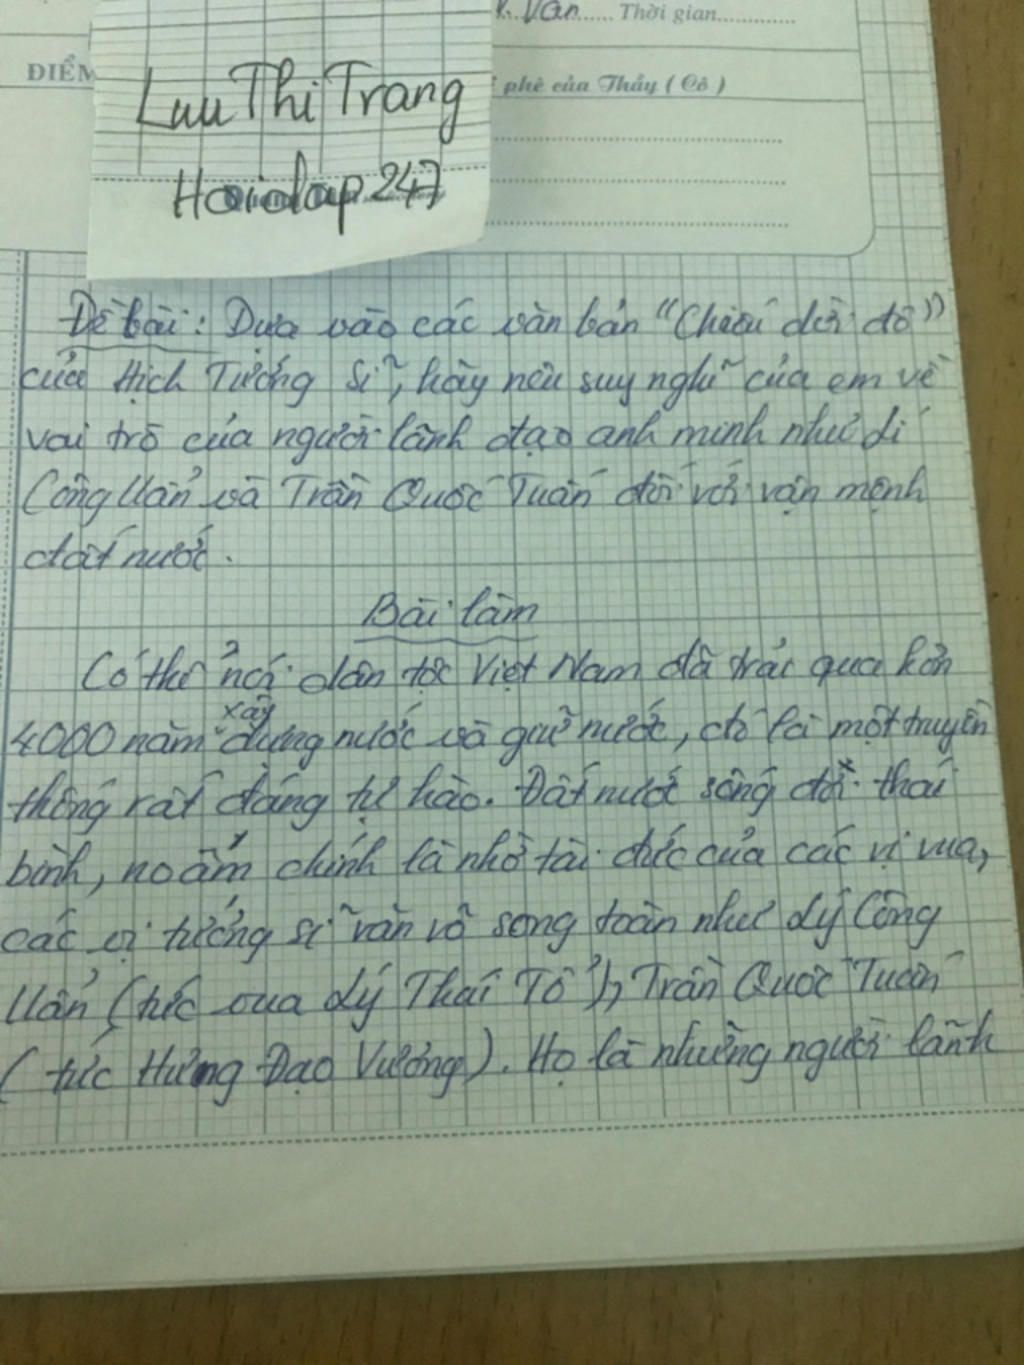 K. Văn...... Thời gian.............
ĐIỂM
phê của Thầy ( Cô )
Lưu Thị Trang
Hoidap 247
Đề bài: Dựa vào các văn bản "Chiếu dời đô"
của Hịch Tướng Sĩ", hãy nêu suy nghĩ của em về
vai trò của người lãnh đạo anh minh như Lí
Công Uẩn và Trần Quốc Tuấn đối với vận mệnh
đất nước.
Bài làm
Có thể nói dân tộc Việt Nam đã trải qua hơn
xây
4000 năm dựng nước và giữ nước, đó là một truyền
thống rất đáng tự hào. Đất nước sống đời thái
bình, no ấm chính là nhờ tài đức của các vị vua,
các vị tướng sĩ văn võ song toàn như Lý Công
Uẩn (tức vua Lý Thái Tổ), Trần Quốc Tuấn
(tức Hưng Đạo Vương). Họ là những người lãnh